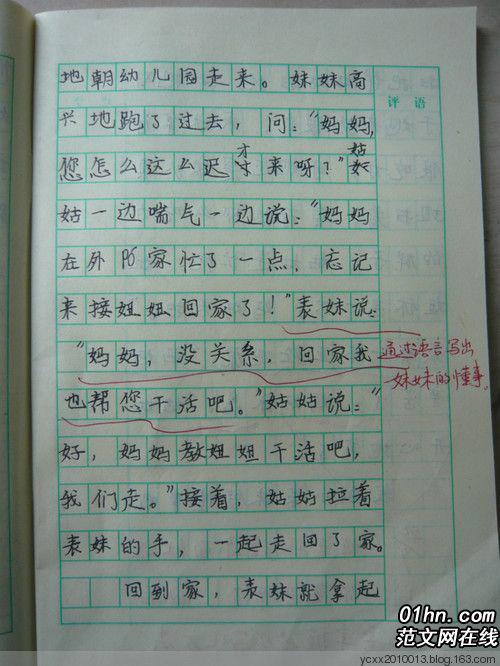 地朝幼儿园走来。妹妹高
评语
兴地跑了过去，问："妈妈，
您怎么这么迟才来呀？"姑
姑一边喘气一边说："妈妈
在外婆家忙了一点，忘记
来接妞妞回家了！"表妹说：
"妈妈，没关系，回家我
通过语言写出
妹妹的懂事。
也帮您干活吧。"姑姑说："
好，妈妈教妞妞干活吧，
我们走。"接着，姑姑拉着
表妹的手，一起走回了家。
回到家，表妹就拿起
01hn.com
范文网在线
ycxx2010013.blog.163.com